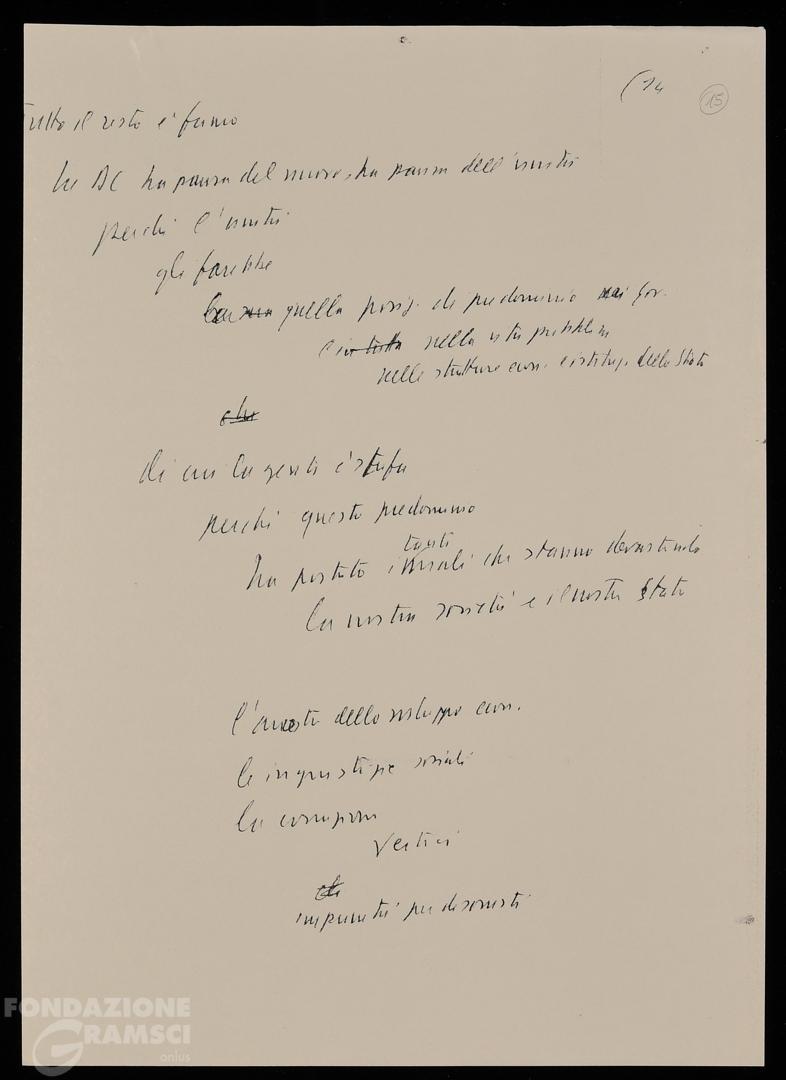 (14
15
Tutto il resto è fumo
La DC ha paura del nuovo, ha paura dell'unità
perché l'unità
gli farebbe
quella posiz. di predominio nei gov.
e in tutta nella vita pubblica
nelle strutture econ. e istituz. dello Stato
che
di cui la gente è stufa
perché questo predominio
tanti
ha portato i mali che stanno devastando
la nostra società e il nostro Stato
l'arresto dello sviluppo econ.
le ingiustizie sociali
la corruzione
vertici
impunità per disonesti
FONDAZIONE
GRAMSCI
onlus